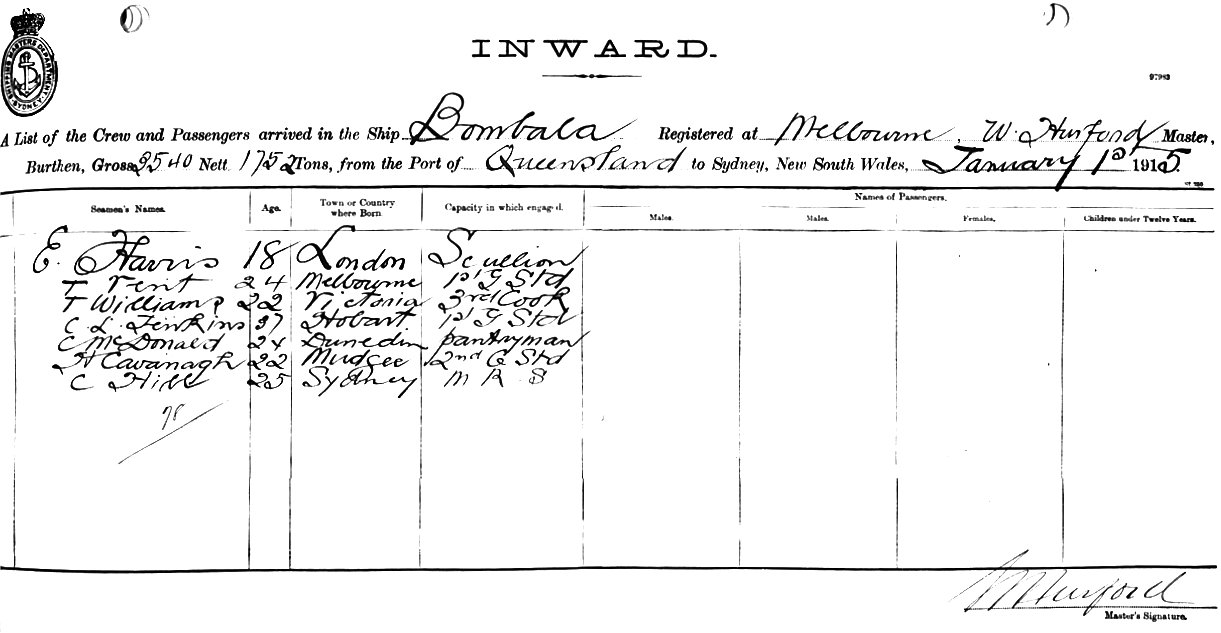 SHIPPING MASTERS DEPARTMENT SYDNEY
INWARD.
97983
A List of the Crew and Passengers arrived in the Ship Bombala Registered at Melbourne. W. Hurford Master,
Burthen, Gross 3540 Nett 1752 Tons, from the Port of Queensland to Sydney, New South Wales, January 1st 1915.
Seamen's Names. Age. Town or Country where Born Capacity in which engaged. Names of Passengers.
Males. Males. Females. Children under Twelve Years.
E. Harris 18 London Scullion
T Tent 24 Melbourne 1st G Std
T Williams 22 Victoria 3rd Cook
C L Jenkins 37 Hobart 1st G Std
C McDonald 24 Dunedin pantryman
H Cavanagh 22 Mudgee 2nd C Std
C Hill 25 Sydney M R S
78
W Hurford
Master's Signature.